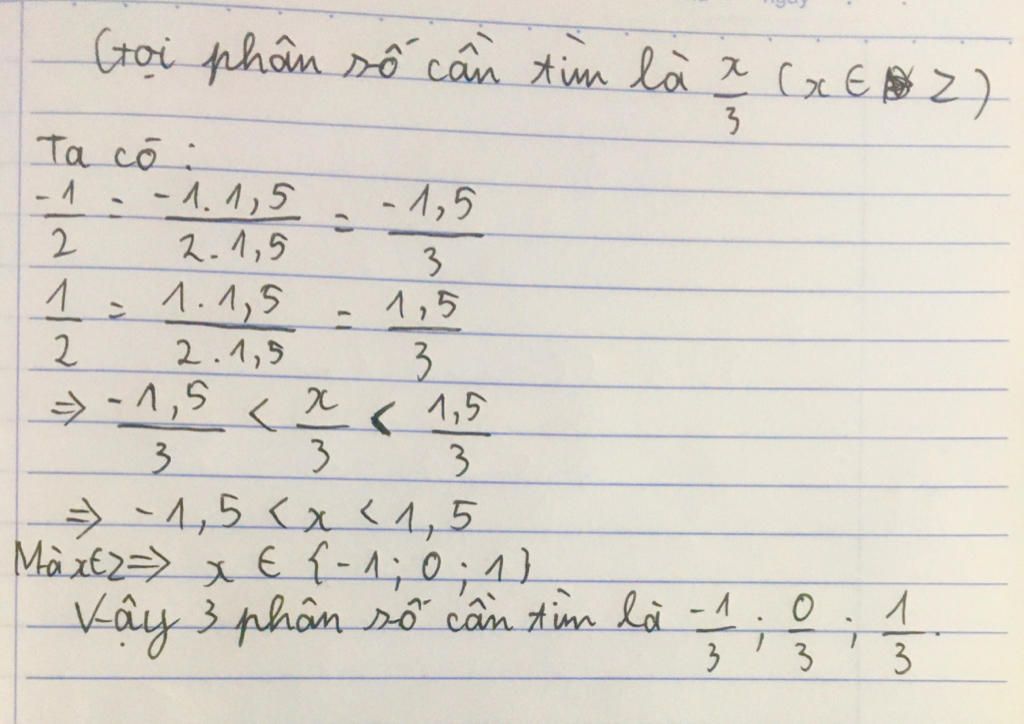 Gọi phân số cần tìm là x/3 (x ∈ Z)
Ta có:
-1/2 = -1.1,5/2.1,5 = -1,5/3
1/2 = 1.1,5/2.1,5 = 1,5/3
⇒ -1,5/3 < x/3 < 1,5/3
⇒ -1,5 < x < 1,5
Mà x∈Z ⇒ x ∈ {-1; 0; 1}
Vậy 3 phân số cần tìm là -1/3; 0/3; 1/3.